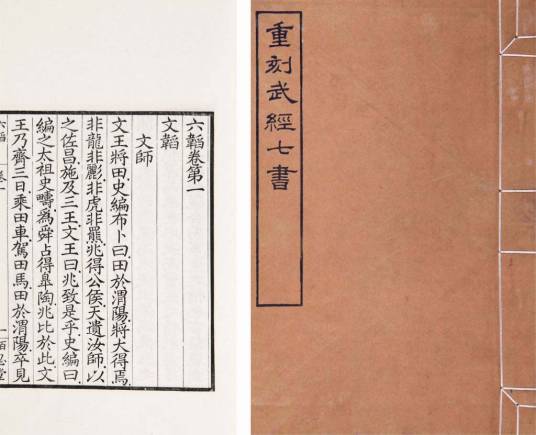 重刻武經七書
六韜卷第一
文韜
文師
文王將田史編布卜曰田於渭陽將大得焉
非龍非彲非虎非羆兆得公侯天遺汝師以
之佐昌施及三王文王曰兆致是乎史編曰
編之太祖史疇爲舜占得皋陶兆比於此文
王乃齊三日乘田車駕田馬田於渭陽卒見
六韜 卷一